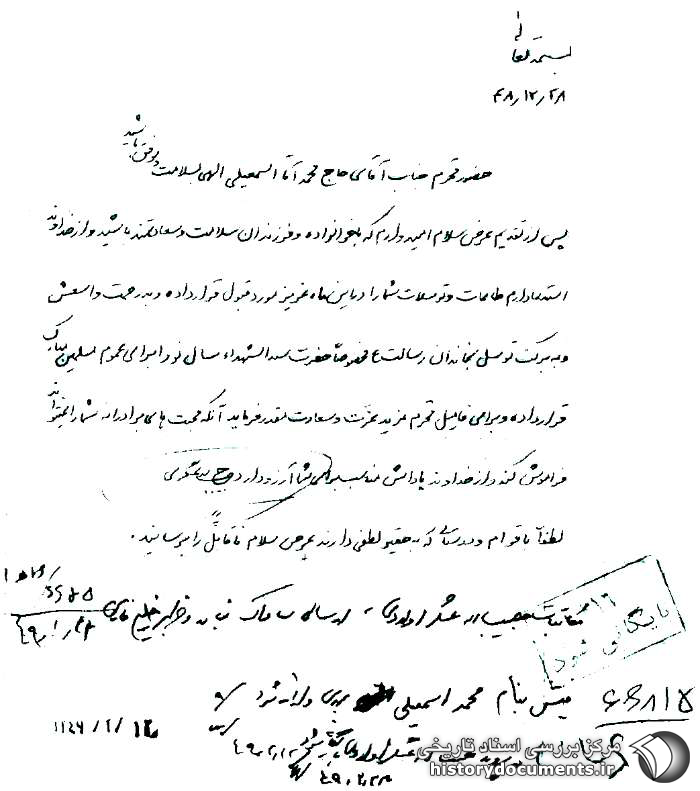 بسمه تعالی
۴۸/۱۲/۲۸
حضور محترم جناب آقای حاج محمد آقا اسمعیلی الهی بسلامت و موفق باشید
پس از تقدیم عرض سلام امیدوارم که با خوانواده و فرزندان سلامت و سعادتمند باشید و از خداوند
استدعا دارم طاعات و توسلات شما را در این ماه عزیز مورد قبول قرار داده و به رحمت واسعش
و به برکت توسل بخاندان رسالت ع مخصوصاً حضرت سید الشهداء سال نو را برای عموم مسلمین مبارک
قرار داده و برای فامیل محترم مزید عزت و سعادت مقدر فرماید آنکه محبت های برادرانه شما را نمیتواند
فراموش کند و از خداوند پاداش مناسب برای شما آرزو دارد ح عسگری
لطفاً باقوام و دوستانی که به حقیر لطفی دارند عرض سلام قابل را برسانید.
بایگانی شود
۴۹/۱/۲۳
عسگر اولادی ، ارسالی ساواک
۶۶۸۱۵
پیش بنام محمد اسمعیلی شود
۴۹/۲/۲۳
مرکز بررسی اسناد تاریخی
historydocuments.ir